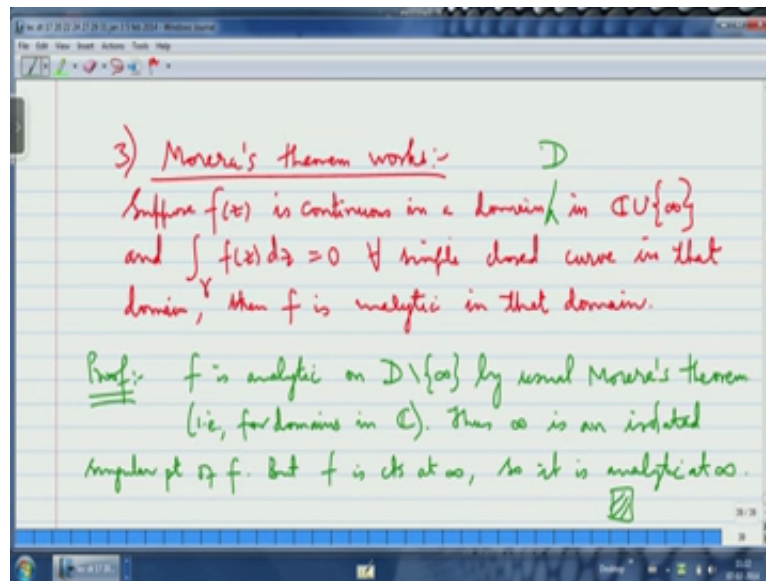 lec dt 17 20 22 24 27 29 31 jan 3 5 feb 2014 - Windows Journal
File Edit View Insert Actions Tools Help
3) Morera's theorem works:-
D
Suppose f(z) is continuous in a domain in ℂ∪{∞}
and ∫γ f(z) dz = 0 ∀ simple closed curve in that
domain, then f is analytic in that domain.
Proof:- f is analytic on D\{∞} by usual Morera's theorem
(i.e, for domains in ℂ). Thus ∞ is an isolated
singular pt of f. But f is cts at ∞, so it is analytic at ∞.
38/38
38